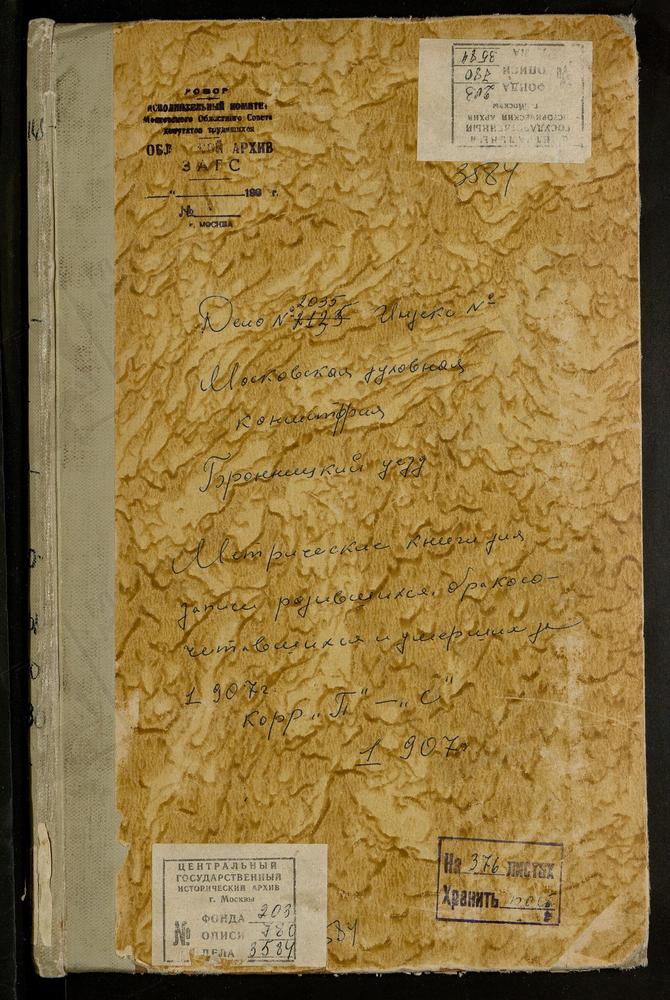 РСФСР
ИСПОЛНИТЕЛЬНЫЙ КОМИТЕТ
Московского Областного Совета
депутатов трудящихся
ОБЛ НОЙ АРХИВ
ЗАГС
"            196  г.
№
г. МОСКВА
ГОСУДАРСТВЕННЫЙ
ИСТОРИЧЕСКИЙ АРХИВ
г. Москвы
ФОНДА 203
№ ОПИСИ 780
3584
3584
Дело № 2035 Индекс №
Московская духовная
консистория
Бронницкий уезд
Метрические книги для
записи родившихся, бракосо-
четавшихся и умерших за
1907г.
корр „П" – „С"
1907г
ЦЕНТРАЛЬНЫЙ
ГОСУДАРСТВЕННЫЙ
ИСТОРИЧЕСКИЙ АРХИВ
г. Москвы
ФОНДА 203
№ ОПИСИ 780
ДЕЛА 3584
84
На 376 листах
Хранить пост